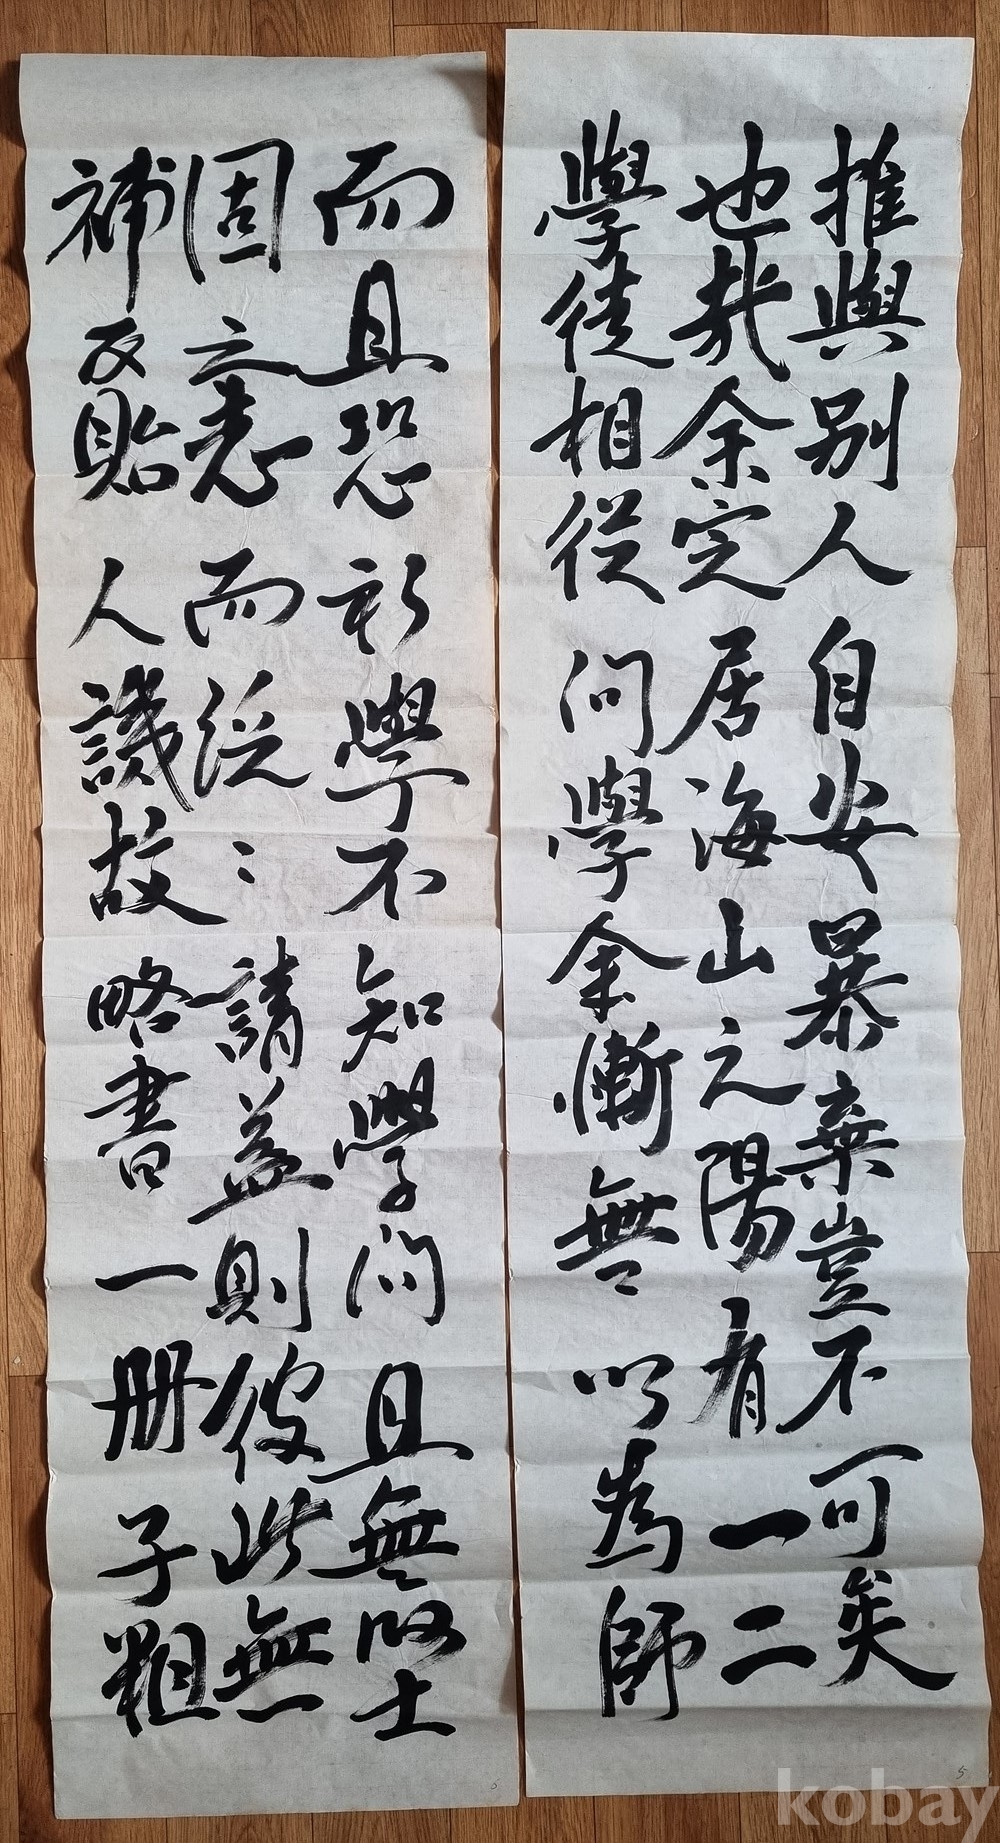 推與別人自安暴棄豈不可矣
也哉余定居海山之陽有一二
學徒相從問學余慚無以為師
5
而且恐初學不知學問且無堅
固之志而泛〻請益則彼此無
補反貽人譏故略書一冊子粗
6
kobay